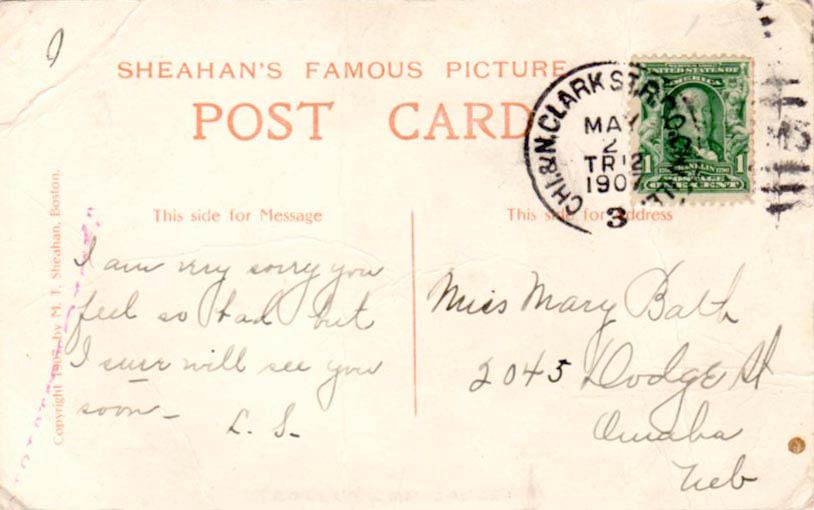 SHEAHAN'S FAMOUS PICTURE
POST CARD
CHI. & N. CLARK ST. R.P.O.
MAY
2
TR 12
1907
3
UNITED STATES OF
AMERICA
1 FRANKLIN 1
POSTAGE
ONE CENT
This side for Message
This side for Address
Copyright 1905, by M. T. Sheahan, Boston.
I am very sorry you
feel so bad but
I surr will see you
soon -
L. S-
Miss Mary Bath
2045 Dodge St
Omaha
Neb